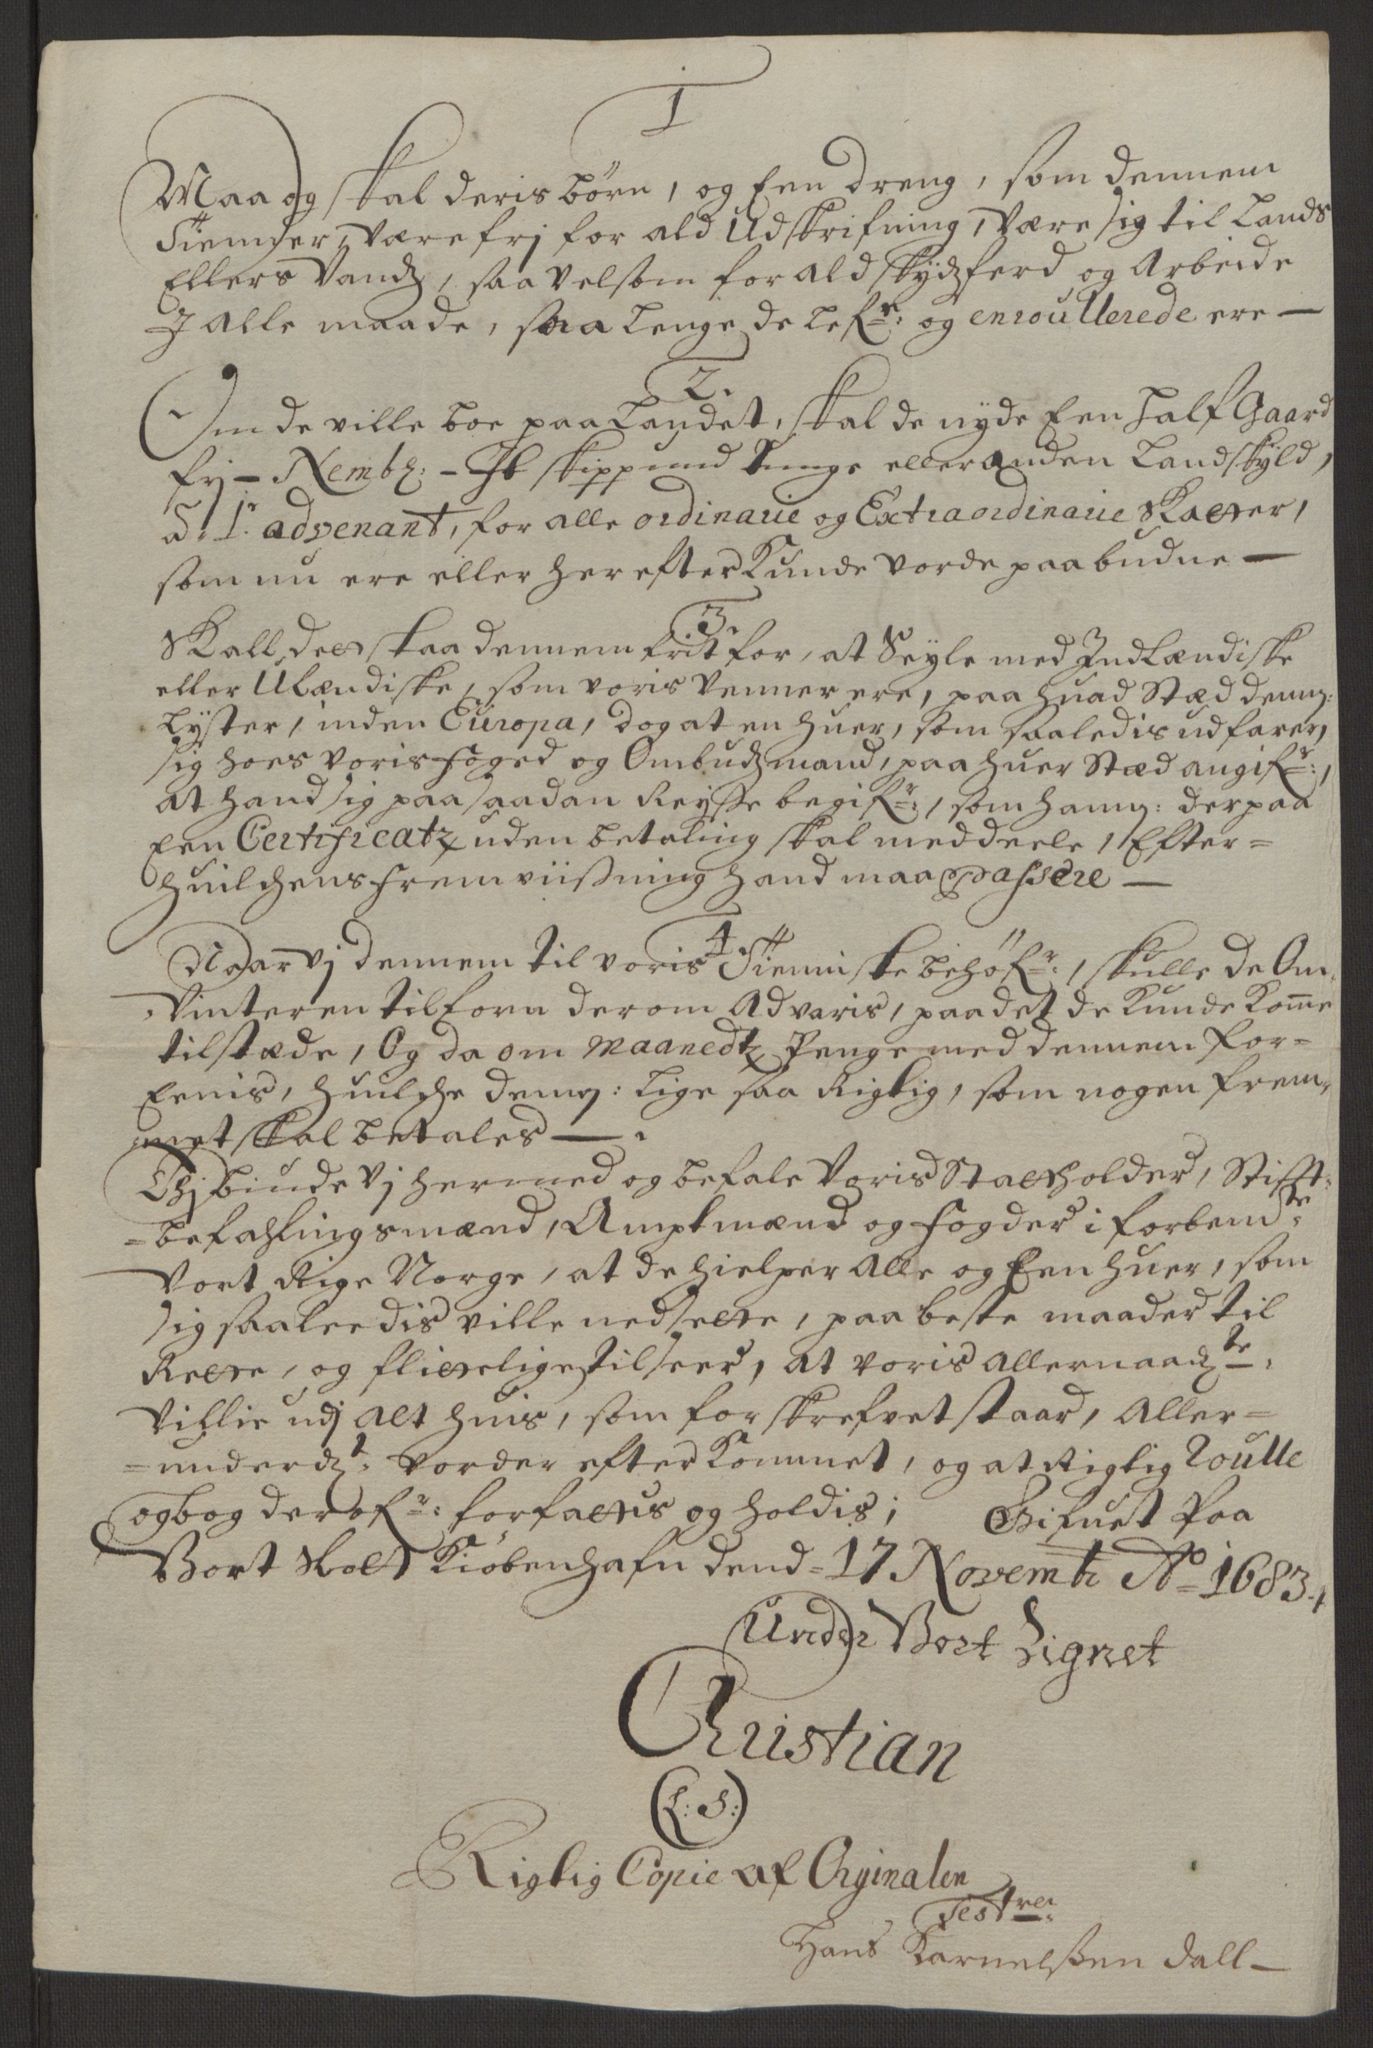 1
Maa og skal deris børn, og Een dreng, som dennem
Tienner, være frj for ald Udskrifning, være sig til Lands
Ellers Vandz, saa velsom for ald skydzferd og Arbeide
J alle maade, saa lenge de lefr: og enroullerede ere —
2.
Om de ville boe paa Landet, skal de nyde Een half Gaard
frj — Nembl: — It skippund tunge eller anden Landskyld,
â l'advenant, for alle ordinarie og Extraordinarie Skatter,
som nu ere eller her efter Kunde vorde paabudne —
3.
Skall det staa dennem frit for, at Seyle med Indlændiske
eller Ulændiske, som voris Venner ere, paa huad Stæd denn:
Lyster, inden Europa, dog at en huer, som saaledis udfarer,
sig hoes voris foged og Ombudzmand, paa huer Stæd angifr:,
at hand sig paa saadan Reysse begifr:, som hann: derpaa
Een Certificatz uden betaling skal meddeele, Efter=
huilchens fremviißning hand maa passere —
4.
Naar vj dennem til voris Tienniste behøfr:, skulle de Om
Vinteren tilforn derom Advaris, paa det de Kunde Komme
tilstæde, Og da om Maanedtz Penge med dennem for=
Eenis, huilche denn: lige saa Rigtig, som nogen frem=
met skal betales —.
Thj biude vj hermed og befale Voris Statholder, Stifft=
=befahlingsmænd, Amptmænd og fogder i forbemte
Vort Rige Norge, at de hielper Alle og Een huer, som
sig saaleedis ville nedsette, paa beste maader til
Rette, og flitteligst tilseer, at voris allernaadzte:
Villie udj alt huis, som forskrefvet staar, Aller=
=underdt: vorder efterkommet, og at Rigtig Roulle
og bog derofr: forfattis og holdis; Gifuet Paa
Vort Slott Kiøbenhafn dend = 17 Novembr Ao = 1683.
Under Vort Zignet
Christian
(L: S:)
Rigtig Copie af Orginalen
Hans Karnelßen Dall —